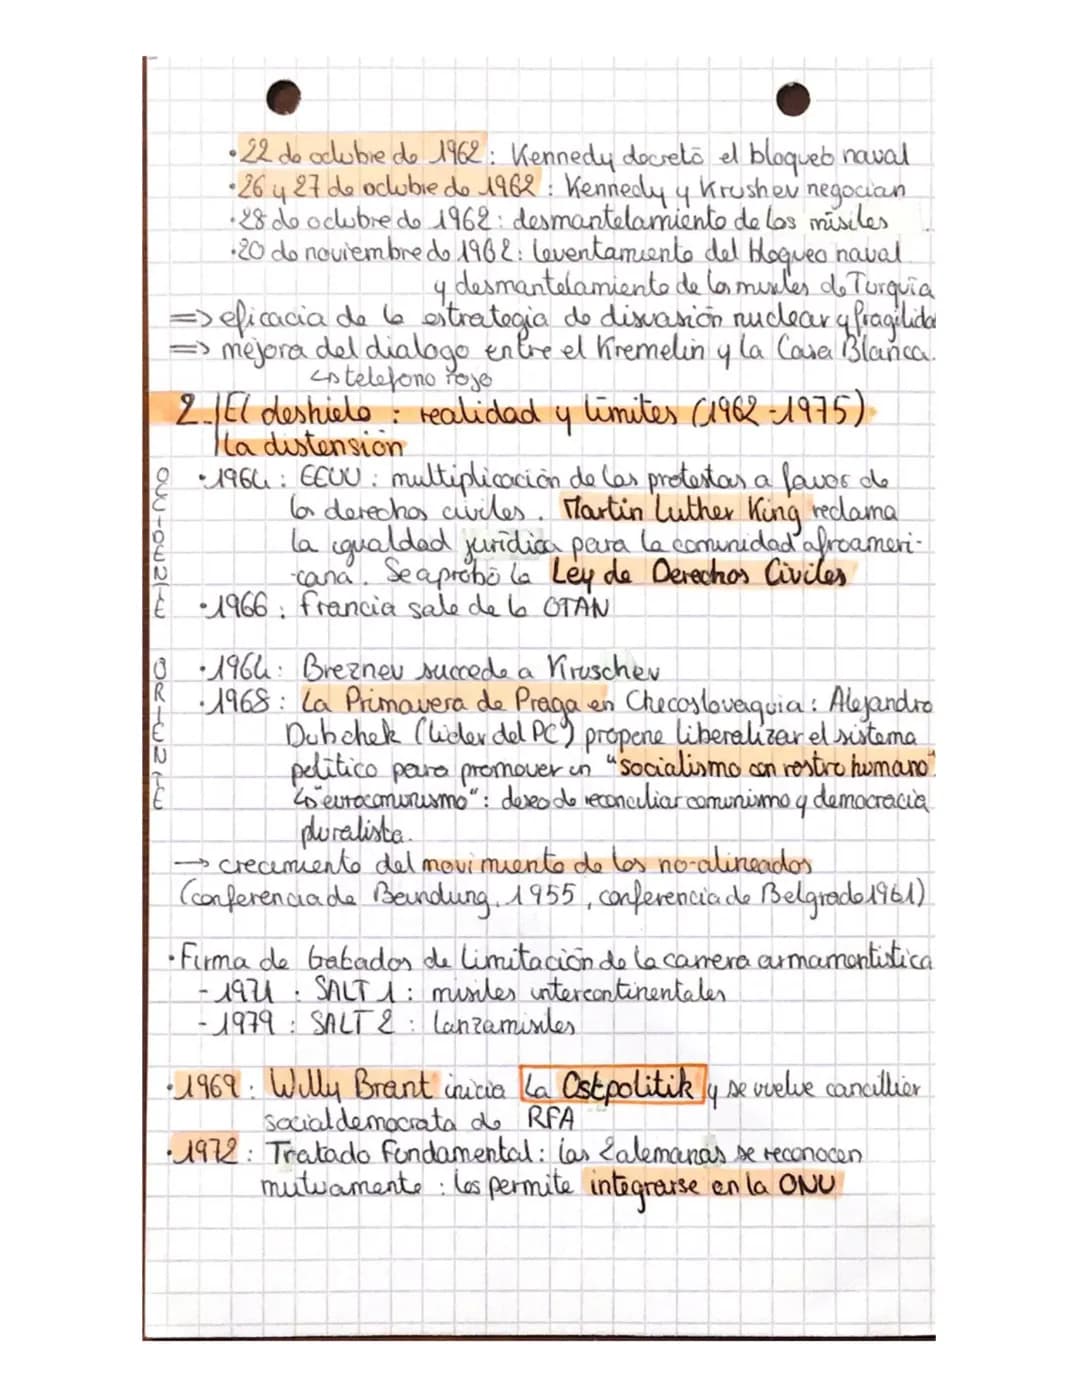 ·22 de octubre de 1962: Kennedy decretó el bloqueo naval
·26 y 27 de octubre de 1962: Kennedy y Krushev negocian
·28 de octubre de 1962: desmantelamiento de los misiles
·20 de noviembre de 1962: leventamiento del bloqueo naval
y desmantelamiento de los misiles de Turquía
=> eficacia de la estrategia de disuasión nuclear y fragilida
=> mejora del dialogo entre el Kremelin y la Casa Blanca.
↳ telefono rojo
2. El deshielo : realidad y límites (1962-1975)
la distensión
OCCIDENTE
·1964: EEUU: multiplicación de las protestas a favor de
los derechos civiles. Martin Luther King reclama
la igualdad jurídica para la comunidad afroameri-
-cana. Se aprobó la Ley de Derechos Civiles
·1966: Francia sale de la OTAN
ORIENTE
·1964: Breznev succede a Kruschev
·1968: La Primavera de Praga en Checoslovaquia: Alejandro
Dubchek (lider del PC) propone liberalizar el sistema
político para promover un "socialismo con rostro humano"
↳ "eurocomunismo": deseo de reconciliar comunismo y democracia
pluralista.
→ crecimiento del movimiento de los no-alineados
(conferencia de Bandung, 1955, conferencia de Belgrado 1961)
·Firma de tratados de limitación de la carrera armamentistica
- 1971 : SALT 1 : misiles intercontinentales
- 1979 : SALT 2 : lanzamisiles
·1969: Willy Brant inicia la Ostpolitik y se vuelve cancillier
socialdemocrata de RFA
·1972: Tratado Fundamental: las 2 alemanas se reconocen
mutuamente : les permite integrarse en la ONU